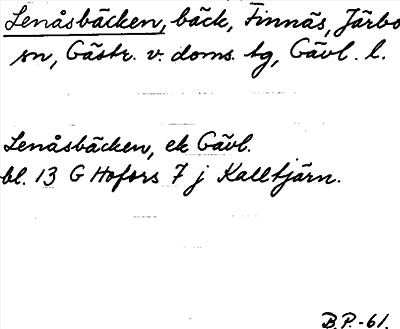 Lenåsbäcken, bäck, Finnäs, Järbo
sn, Gästr. v. doms. tg, Gävl. l.
Lenåsbäcken, ek Gävl.
bl. 13 G Hofors 7 j Kalltjärn.
B.P.-61.